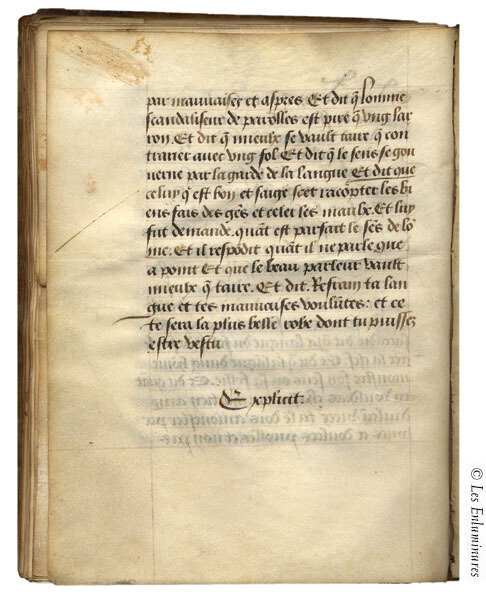 par mauvaises et aspres Et dit q̃ lomme
scandaliseur de parolles est pire q̃ vng lar
ron. Et dit q̃ mieulx se vault taire q̃ con
trarier avec vng fol. Et dit q̃ le sens se gou
uerne par la garde de la langue Et dit que
celuy q̃ est bon et saige scet racõpter les bi
ens fais des gẽs et celer les maulx. Et luy
fut demande. quãt est parfait le sẽs de lõ
me. Et il respõdit quãt il ne parle que
a point Et que le beau parleur vault
mieulx q̃ taire. Et dit. Refrain ta lan
gue et tes mauuaises voulẽtes: et ce
te sera la plus belle robe dont tu puisses
estre vestu
Explicit.
© Les Enluminures